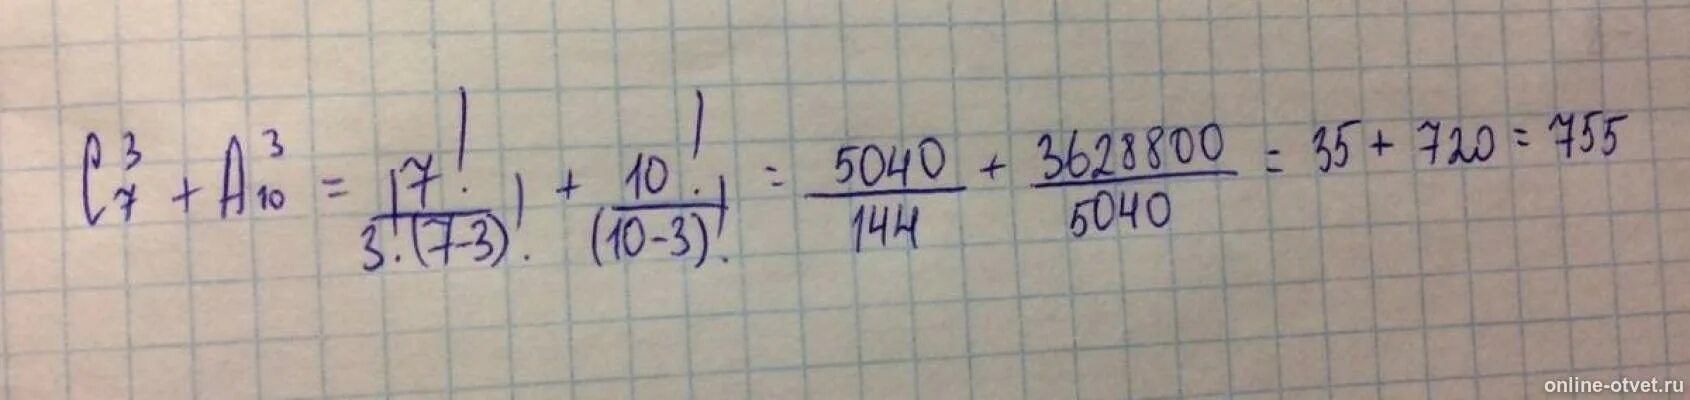 C₇³ + A₁₀³ = 7! / 3!(7-3)! + 10! / (10-3)! = 5040 / 144 + 3628800 / 5040 = 35 + 720 = 755
online-otvet.ru